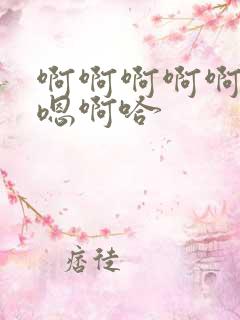 啊啊啊啊啊
嗯啊哈
痞徒